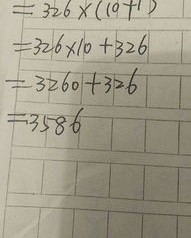 =326×(10+1)
=326×10+326
=3260+326
=3586